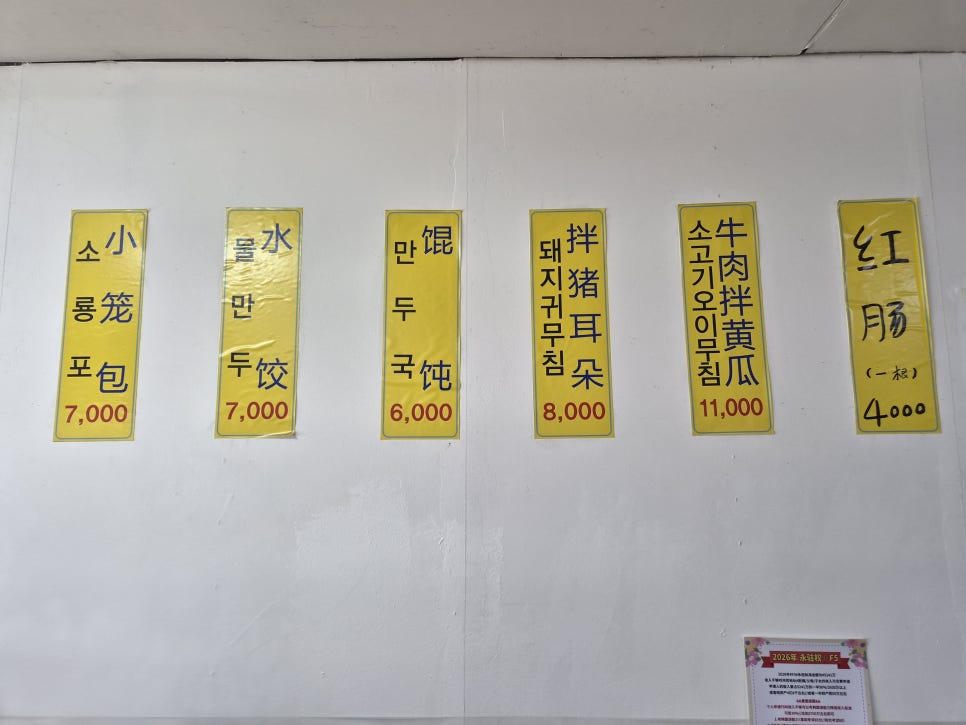 소룡포
小笼包
7,000
물만두
水饺
7,000
만두국
馄饨
6,000
돼지귀무침
拌猪耳朵
8,000
소고기오이무침
牛肉拌黄瓜
11,000
红肠
(一根)
4000
2026年 永驻权 F5